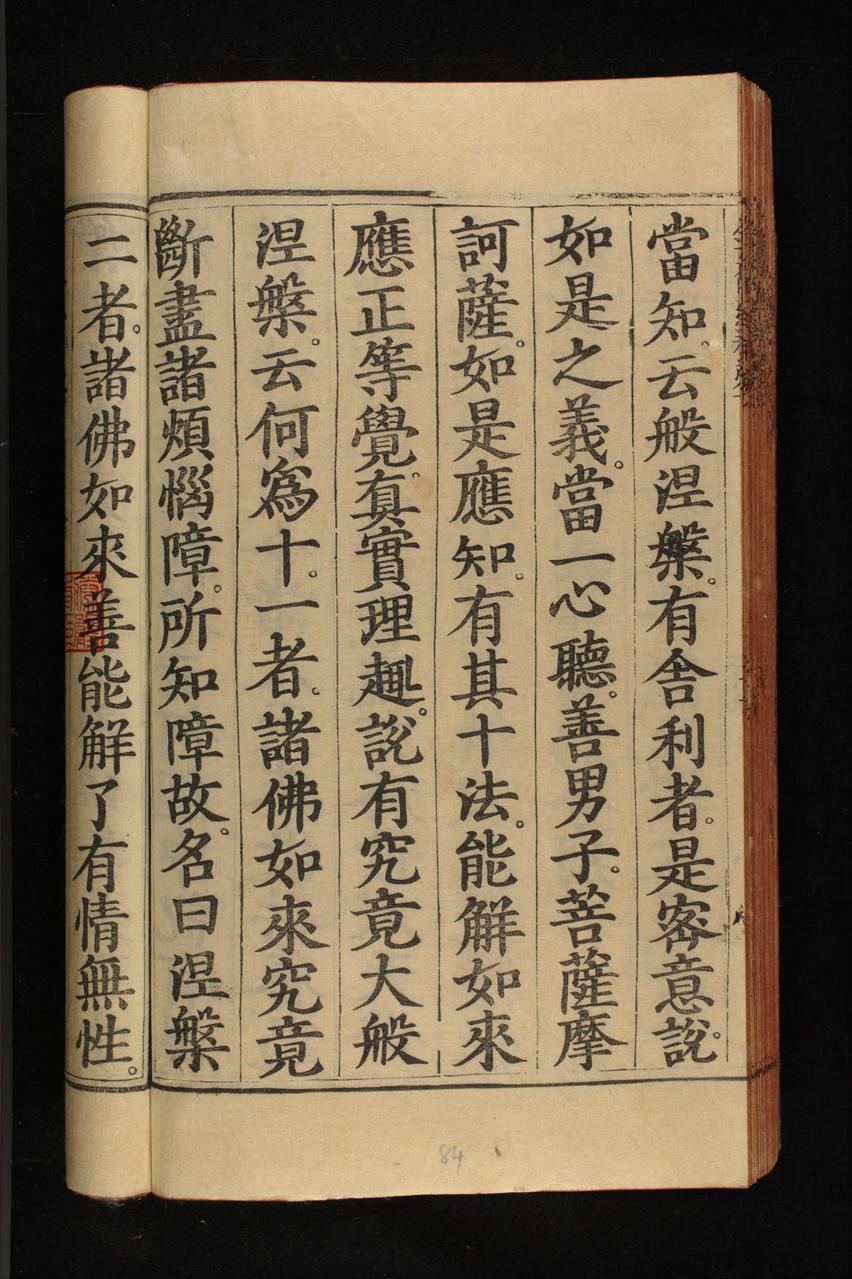 當知。云般涅槃。有舍利者。是密意說。
如是之義。當一心聽。善男子。菩薩摩
訶薩。如是應知。有其十法。能解如來
應正等覺。真實理趣。說有究竟大般
涅槃。云何為十。一者。諸佛如來究竟
斷盡諸煩惱障。所知障故。名曰涅槃
二者。諸佛如來善能解了有情無性。
84